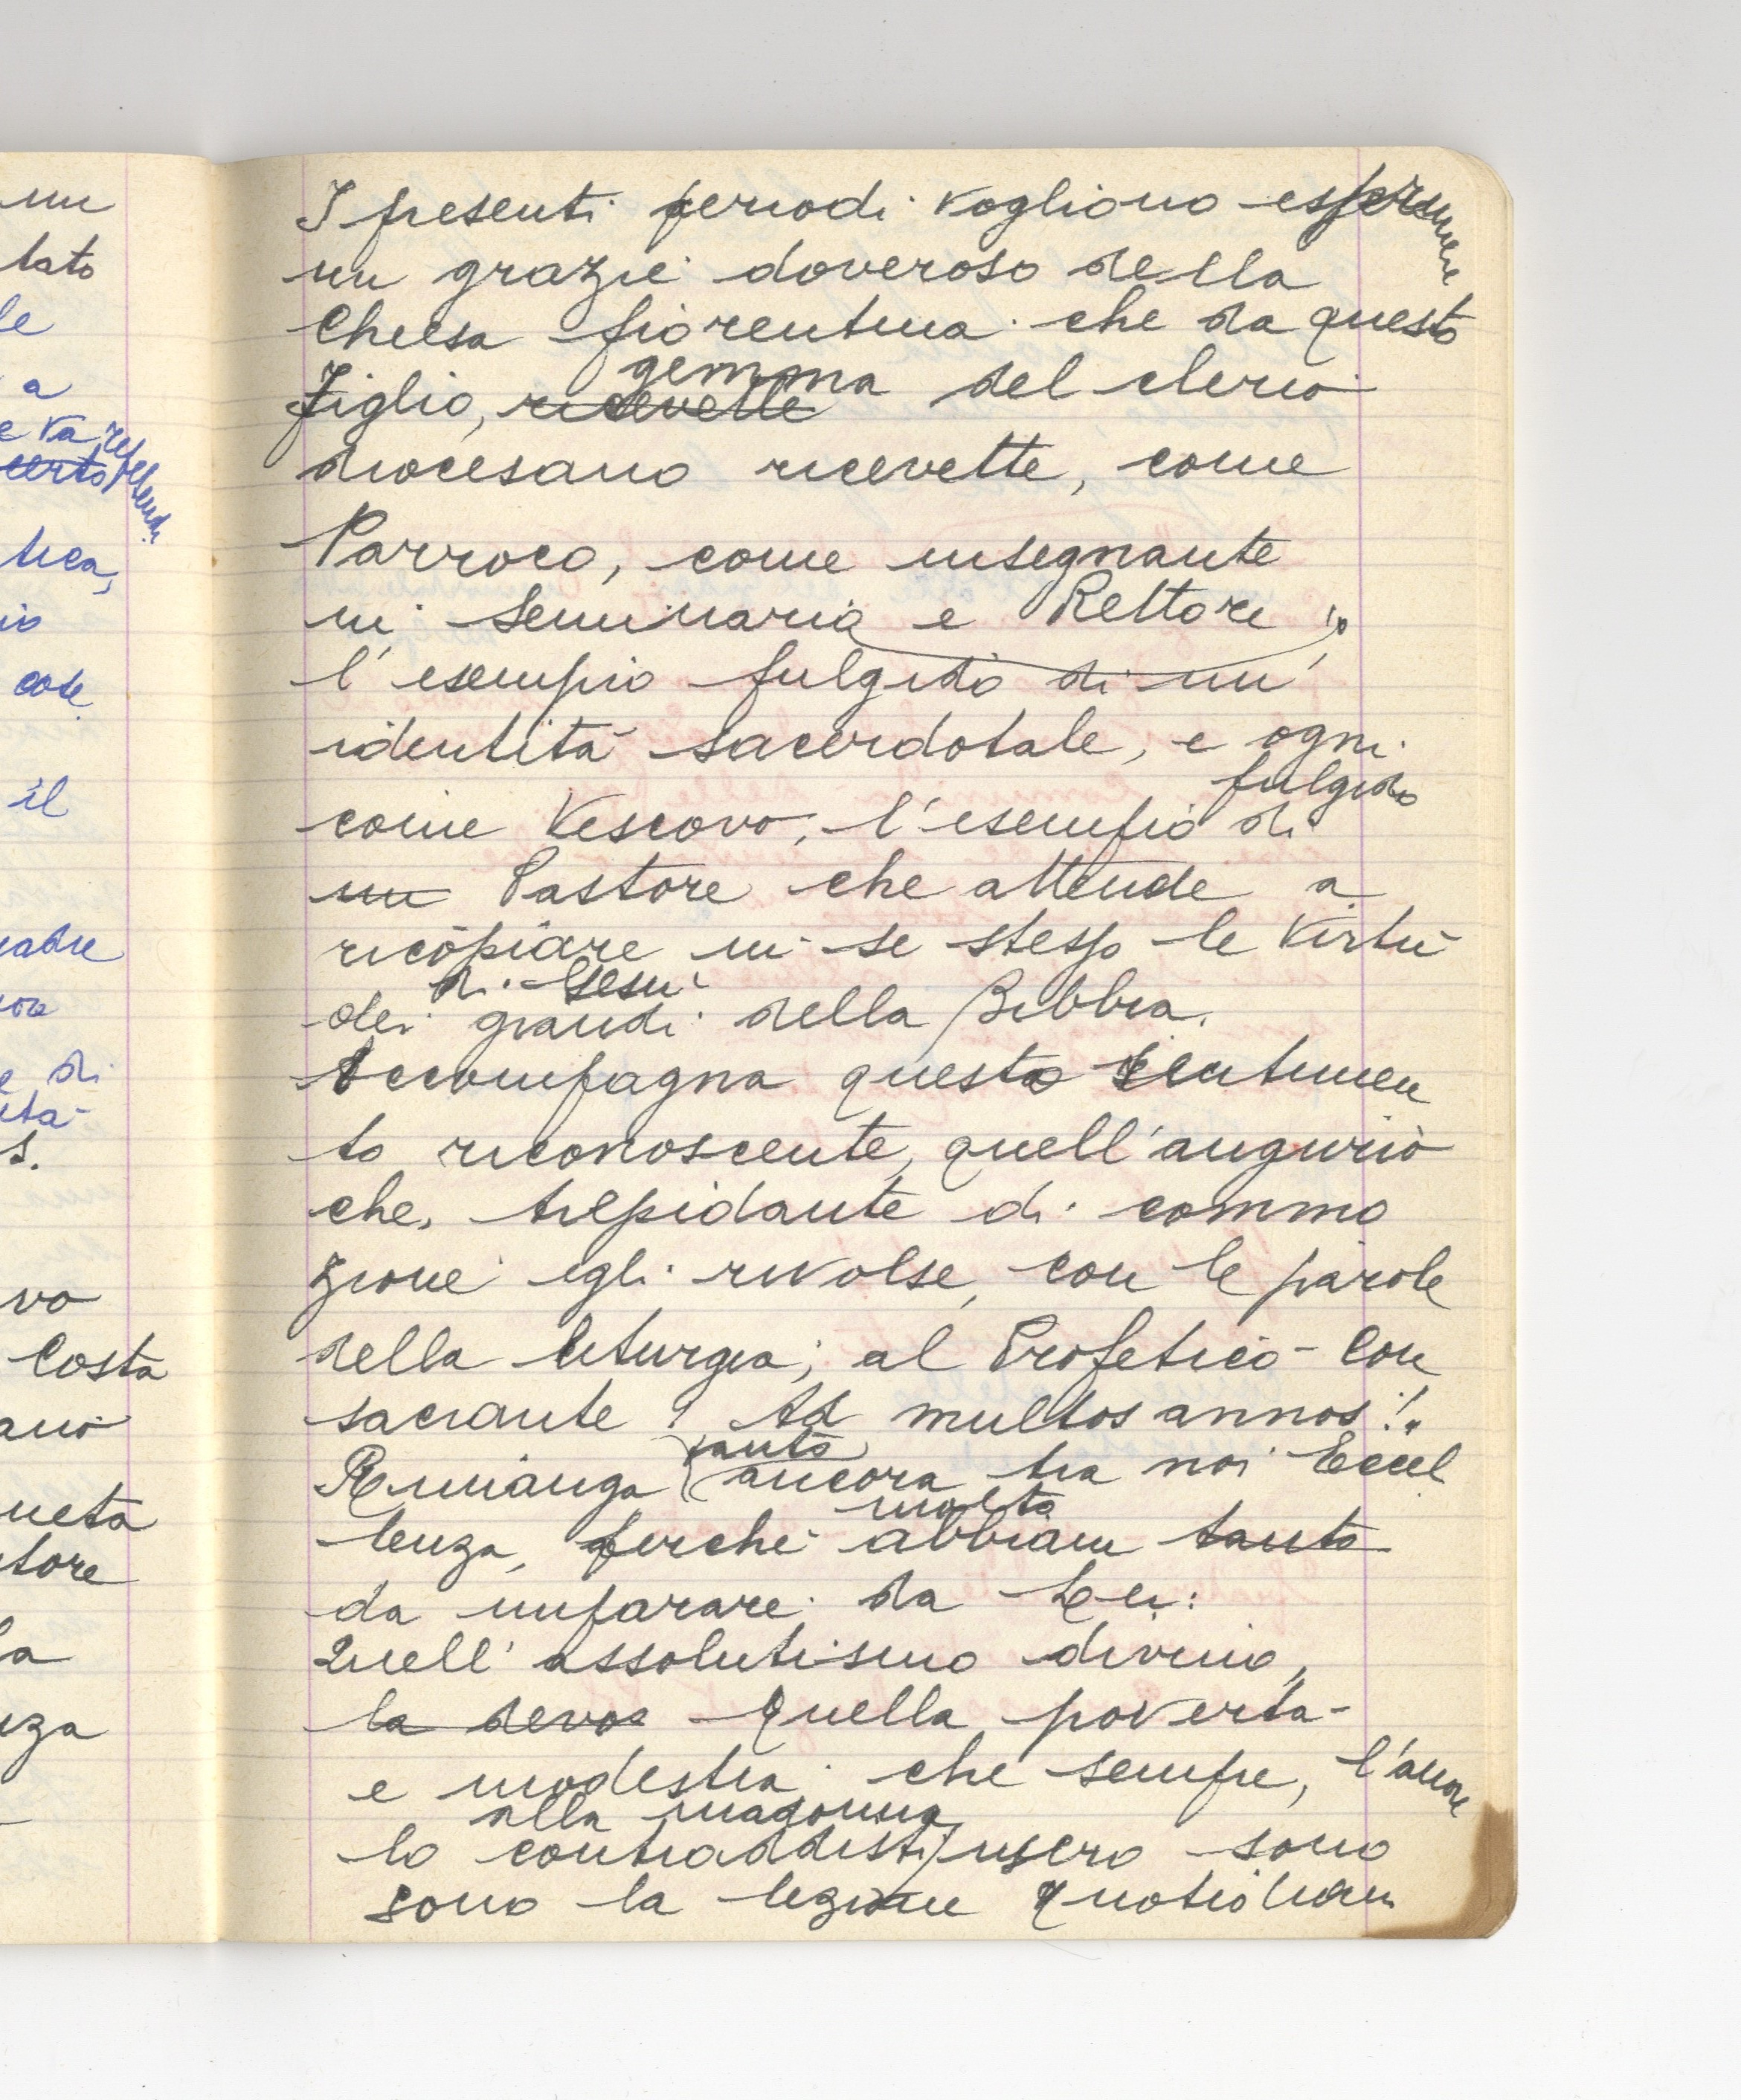 I presenti periodi vogliono esprimere
un grazie doveroso della
Chiesa fiorentina che da questo
gemma
figlio, ricevette del clero
diocesano ricevette, come
Parroco, come insegnante
in Seminario e Rettore,
l'esempio fulgido di un'
identità sacerdotale, e ogni
fulgido
come Vescovo, l'esempio di
un Pastore che attende a
ricopiare in se stesso le virtù
di Gesù
dei grandi della Bibbia.
Accompagna questo sentimen
to riconoscente, quell'augurio
che, trepidante di commo
zione egli rivolse, con le parole
della liturgia, al Profetico - Con
sacrante "Ad multos annos!"
tanto
Rimanga ancora tra noi Eccel
molto
lenza, perché abbiam tanto
da imparare da Lei:
Quell'assolutismo divino,
la devoz quella povertà
e modestia che sempre, l'amore
alla madonna
lo contraddistinsero sono
sono la lezione
un
tato
le
a
e va
certo
tica,
io
cose
il
madre
e di
s.
vo
Costa
ano
neta
tore
la
nza